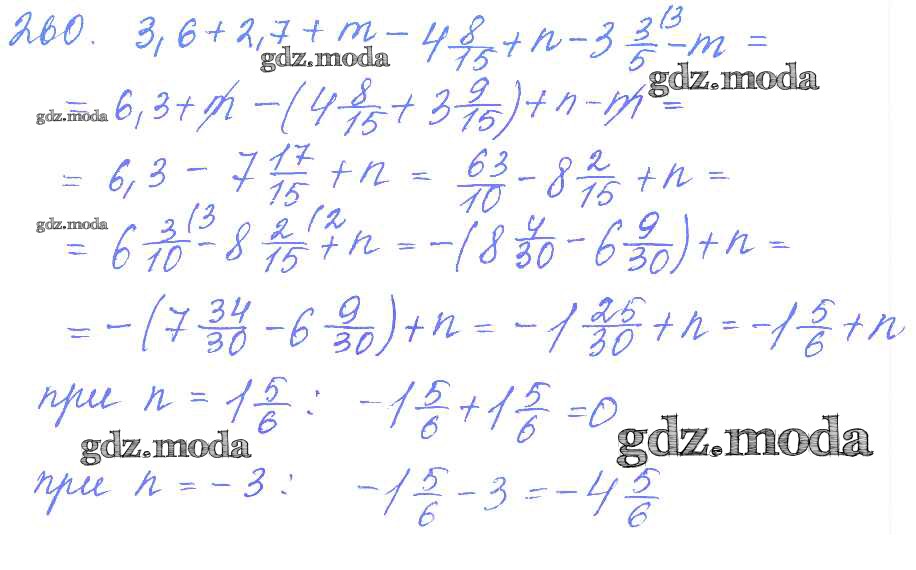 260. 3,6 + 2,7 + m - 4 8/15 + n - 3 3/5 (3 - m =
gdz.moda gdz.moda
gdz.moda = 6,3 + m - (4 8/15 + 3 9/15) + n - m =
= 6,3 - 7 17/15 + n = 63/10 - 8 2/15 + n =
gdz.moda
= 6 3/10 (3 - 8 2/15 (2 + n = -(8 4/30 - 6 9/30) + n =
= -(7 34/30 - 6 9/30) + n = -1 25/30 + n = -1 5/6 + n
при n = 1 5/6 : -1 5/6 + 1 5/6 = 0
gdz.moda gdz.moda
при n = -3 : -1 5/6 - 3 = -4 5/6